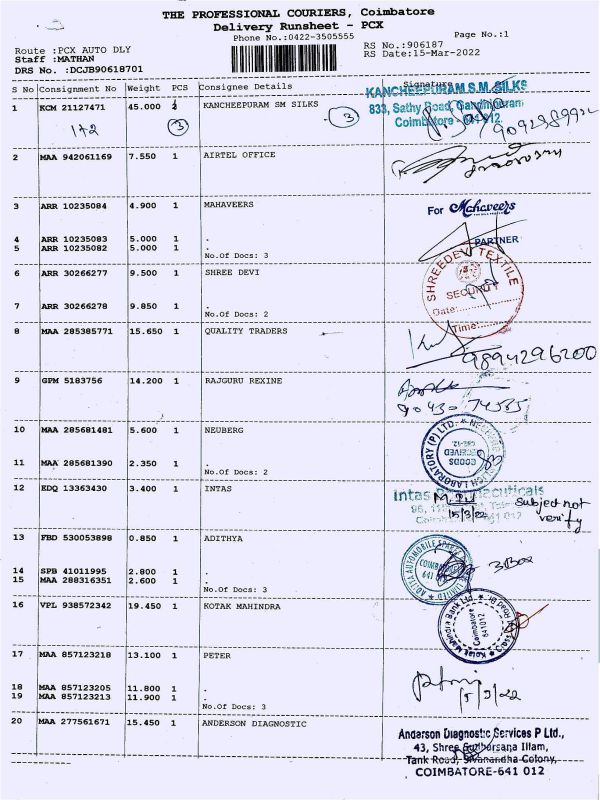 THE PROFESSIONAL COURIERS, Coimbatore
Delivery Runsheet - PCX
Phone No.:0422-3505555 Page No.:1
Route :PCX AUTO DLY RS No.:906187
Staff :MATHAN RS Date:15-Mar-2022
DRS No. :DCJB90618701
S No Consignment No Weight PCS Consignee Details Signature
1 KCM 21127471 45.000 KANCHEEPURAM SM SILKS
1+2 3 3
KANCHEEPURAM S.M. SILKS
833, Sathy Road, Gandhipuram
Coimbatore - 641 012.
2 MAA 942061169 7.550 1 AIRTEL OFFICE
3 ARR 10235084 4.900 1 MAHAVEERS
For Mahaveers
4 ARR 10235083 5.000 1 .
5 ARR 10235082 5.000 1 .
PARTNER
No.Of Docs: 3
6 ARR 30266277 9.500 1 SHREE DEVI
SHREEDEVI TEXTILE
SECURITY
Date:
Time:
7 ARR 30266278 9.850 1 .
No.Of Docs: 2
8 MAA 285385771 15.650 1 QUALITY TRADERS
9894296200
9 GPM 5183756 14.200 1 RAJGURU REXINE
90430 74555
10 MAA 285681481 5.600 1 NEUBERG
GOODS RECEIVED
11 MAA 285681390 2.350 1 .
No.Of Docs: 2
12 EDQ 13363430 3.400 1 INTAS
Intas Pharmaceuticals
15/3/22
Subject not
verify
13 FBD 530053898 0.850 1 ADITHYA
14 SPB 41011995 2.800 1 .
15 MAA 288316351 2.600 1 .
No.Of Docs: 3
3 Box
16 VPL 938572342 19.450 1 KOTAK MAHINDRA
Kotak Mahindra Bank Ltd.
Coimbatore
641012
17 MAA 857123218 13.100 1 PETER
18 MAA 857123205 11.800 1 .
19 MAA 857123213 11.900 1 .
15/3/22
No.Of Docs: 3
20 MAA 277561671 15.450 1 ANDERSON DIAGNOSTIC
Anderson Diagnostic Services P Ltd.,
43, Shree Sudharsana Illam,
Tank Road, Sivanandha Colony,
COIMBATORE-641 012